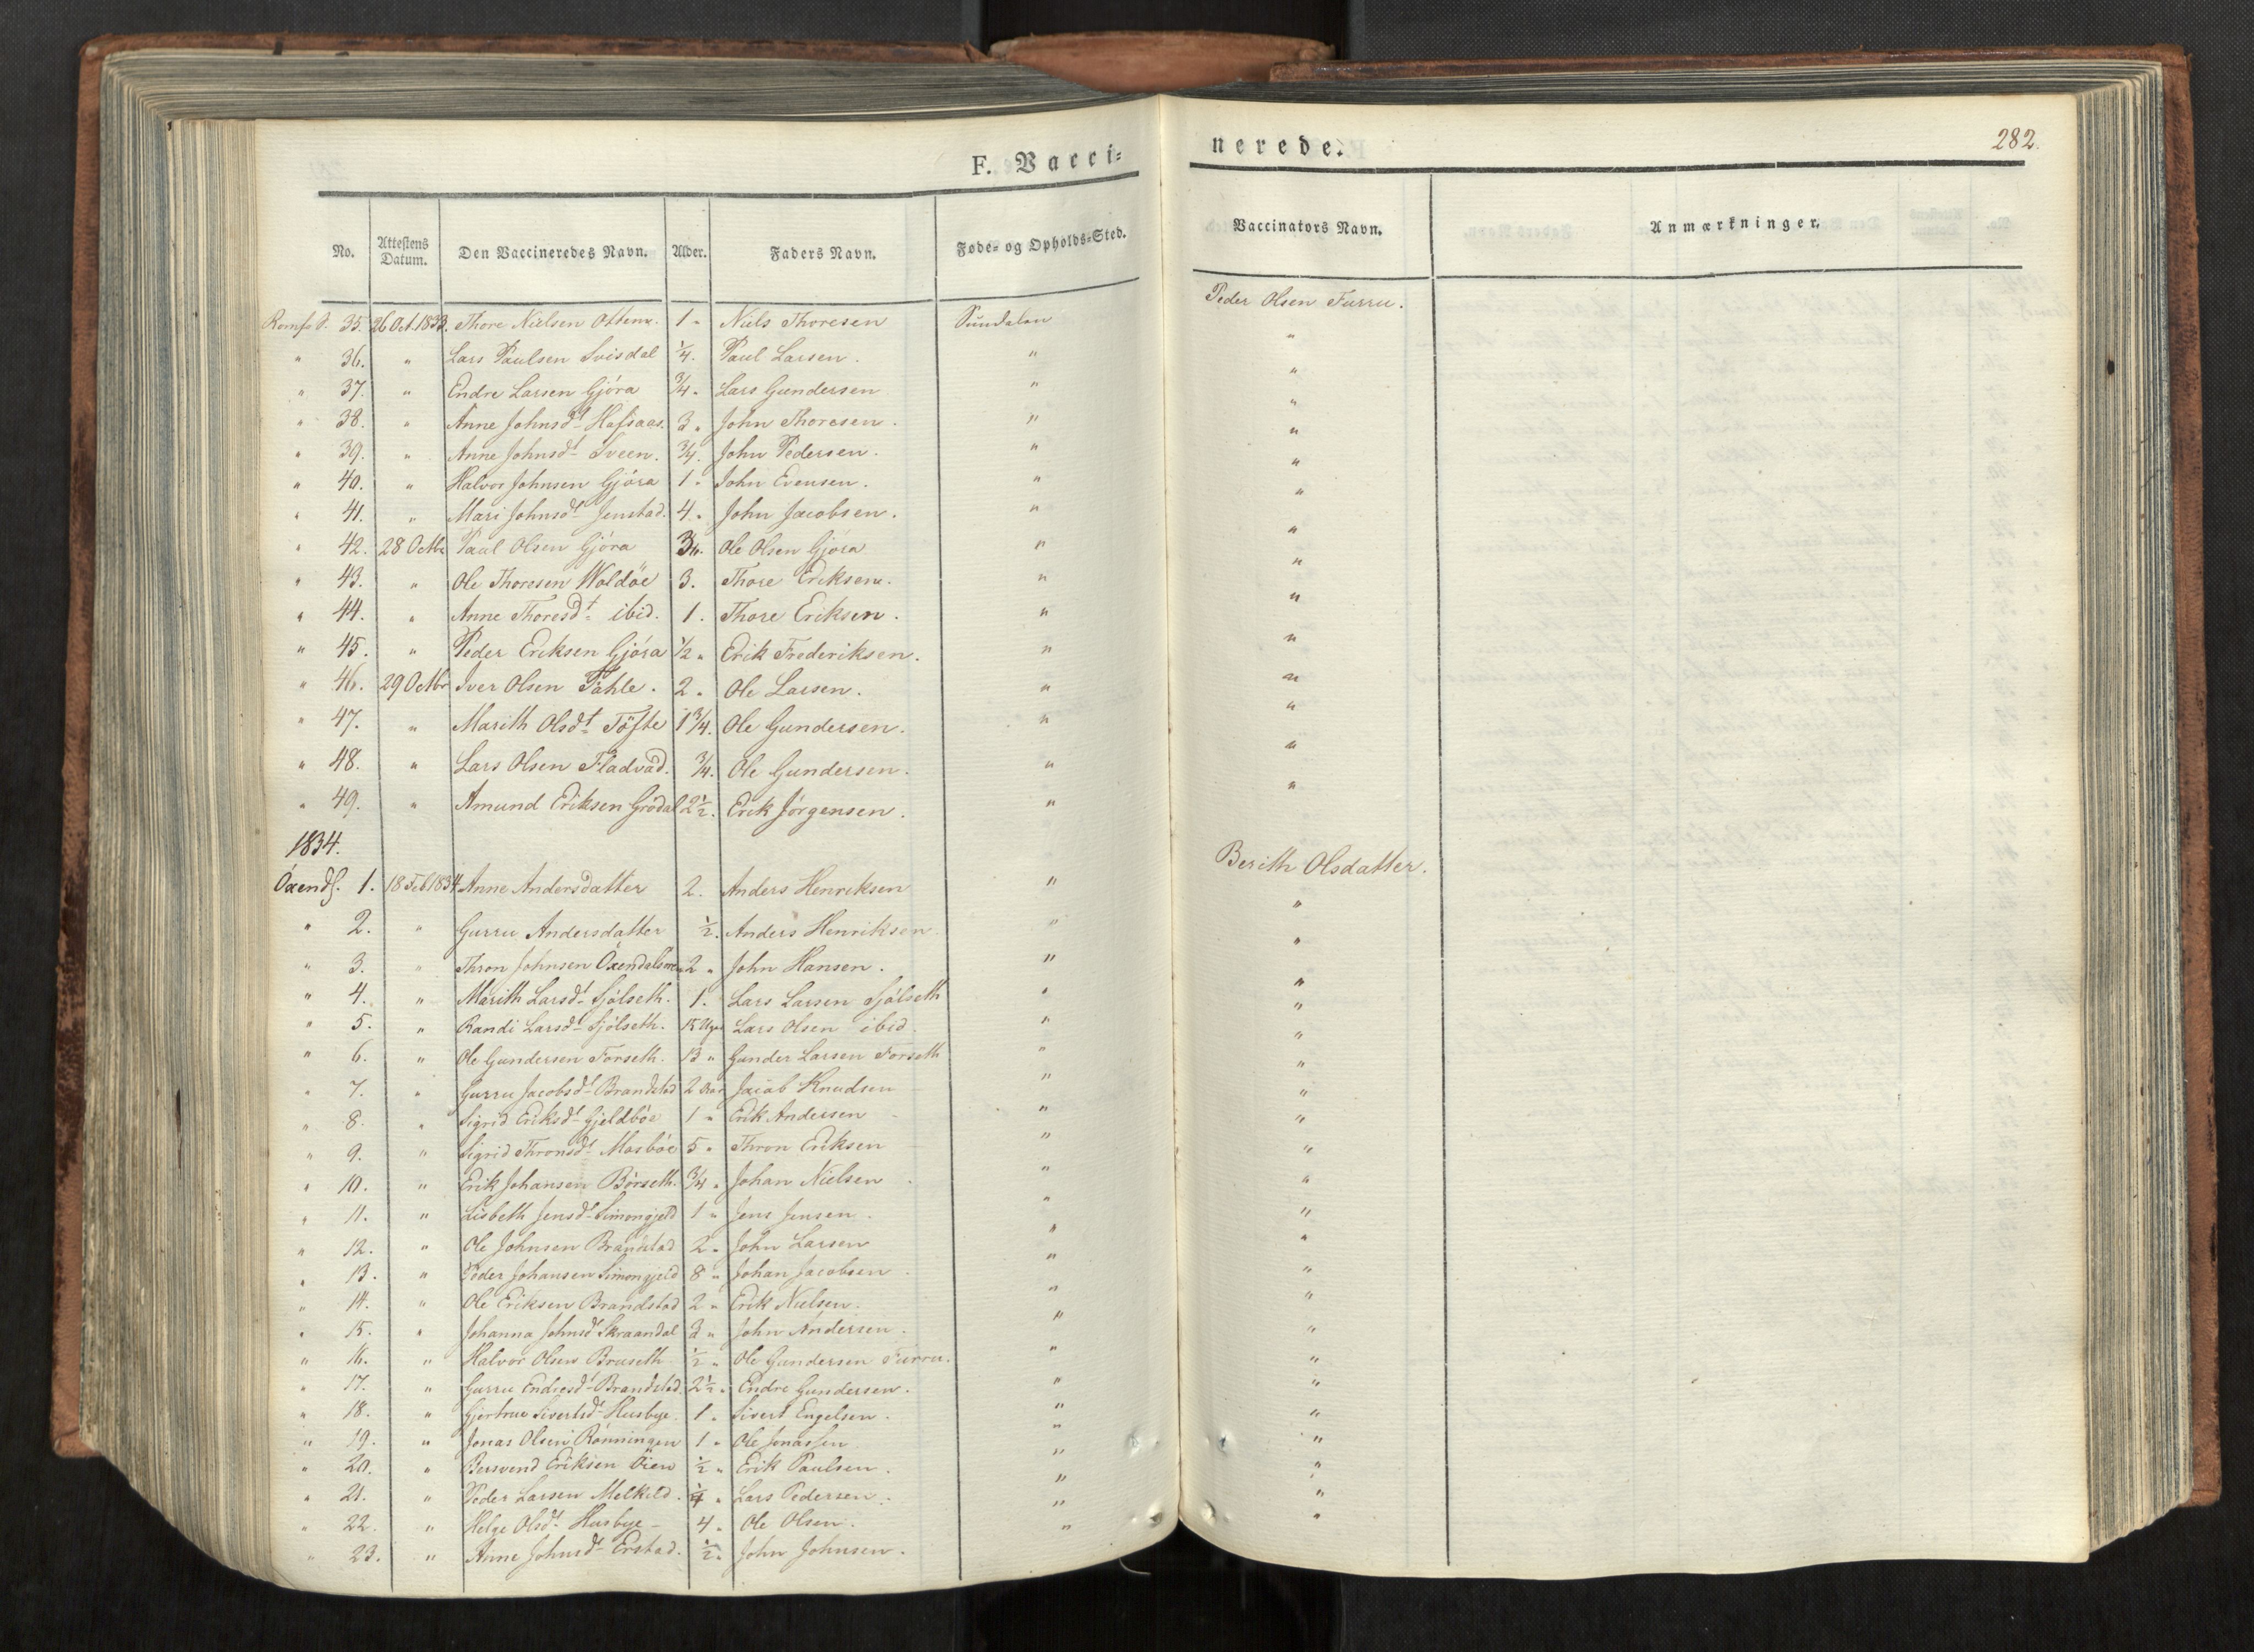 F. Vacci-
nerede.
282.
No. Attestens Datum. Den Vaccineredes Navn. Alder. Faders Navn. Føde- og Opholds-Sted. Vaccinators Navn. Anmærkninger.
35. 26 Oct. 1833. Thore Nielsen 1 " Niels Thoresen Sundalen Peder Olsen Furru.
" 36. " Lars Paulsen Svisdal 1/4. Paul Larsen. " "
" 37. " Endre Larsen Gjöra 3/4 " Lars Gundersen " "
" 38. " Anne Johnsdt Hafsaas. 3 " John Thoresen. " "
" 39. " Anne Johnsdt Sveen. 3/4. John Pedersen. " "
" 40. " Halvor Johnsen Gjöra 1 " John Evensen. " "
" 41. " Mari Johnsdt Jenstad. 4 " John Jacobsen. " "
" 42. 28 Octbr Paul Olsen Gjöra Ole Olsen Gjöra " "
" 43. " Ole Thoresen Woldöe 3. Thore Eriksen. " "
" 44. " Anne Thoresdt ibid. 1. Thore Eriksen. " "
" 45. " Peder Eriksen Gjöra 1/2 " Erik Frederiksen. " "
" 46. 29 Octbr Iver Olsen Pahle. 2 " Ole Larsen. " "
" 47. " Marith Olsdt Töfte 1 3/4. Ole Gundersen. " "
" 48. " Lars Olsen Fladvad. 3/4. Ole Gundersen. " "
" 49. " Amund Eriksen Grödal 2 1/2. Erik Jörgensen. " "
1834.
Öxends. 1. 18 Feb 1834 Anne Andersdatter 2. Anders Henriksen " Berith Olsdatter.
" 2. " Gurru Andersdatter 1/2. Anders Henriksen " "
" 3. " Thron Johnsen 2 " John Hansen. " "
" 4. " Marith Larsdt Sjölseth. 1. Lars Larsen Sjölseth " "
" 5. " Randi Larsdt Sjölseth. 15 Uger Lars Olsen ibid. " "
" 6. " Ole Gundersen Forseth. 13 " Gunder Larsen Forseth " "
" 7. " Gurru Jacobsdt Brandstad 2 Aar Jacob Knudsen " "
" 8. " Sigrid Eriksdt Gjeldböe 1 " Erik Andersen " "
" 9. " Sigrid Thronsdt Mosböe 5 " Thron Eriksen " "
" 10. " Erik Johansen Börseth. 3/4 " Johan Nielsen " "
" 11. " Lisbeth Jensdt Simongjeld 1 " Jens Jensen. " "
" 12. " Ole Johnsen Brandstad 2 " John Larsen " "
" 13. " Peder Johansen Simongjeld 8 " Johan Jacobsen " "
" 14. " Ole Eriksen Brandstad 2 " Erik Nielsen. " "
" 15. " Johanna Johnsdt Skraandal 3 " John Andersen. " "
" 16. " Halvor Olsen Bruseth 1/2 " Ole Gundersen Furru. " "
" 17. " Gurru Endresdt Brandstad. 2 1/2 " Endre Gundersen. " "
" 18. " Gjertrue Sivertsdt Husbye. 1 " Sivert Engelsen. " "
" 19. " Jonas Olsen Rönningen 1 " Ole Jonassen " "
" 20. " Bersvend Eriksen Öien 1/2 " Erik Paulsen. " "
" 21. " Peder Larsen Melkild. 1/4 " Lars Pedersen. " "
" 22. " Helge Olsdt Husbye 4 " Ole Olsen. " "
" 23. " Anne Johnsdt Erstad. 1/2 " John Johnsen. " "